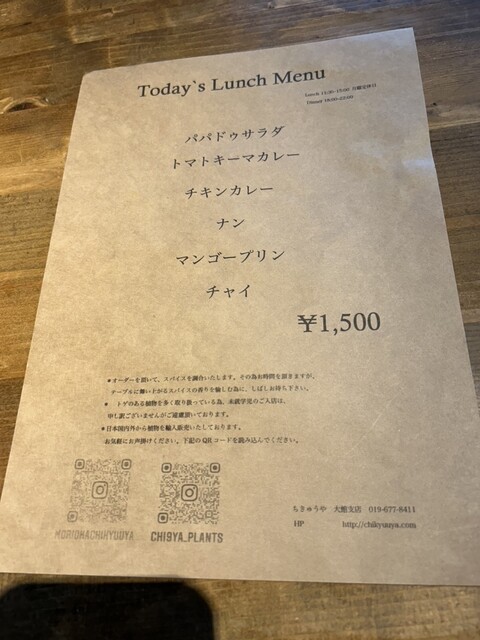 Today`s Lunch Menu
Lunch 11:30-15:00 月曜定休日
Dinner 18:00-22:00
パパドゥサラダ
トマトキーマカレー
チキンカレー
ナン
マンゴープリン
チャイ
¥1,500
●オーダーを頂いて、スパイスを調合いたします。その為お時間を頂きますが、
テーブルに舞い上がるスパイスの香りを愉しむ為に、しばしお待ち下さい。
● トゲのある植物を多く取り扱っている為、未就学児のご入店は、
申し訳ございませんがご遠慮頂いております。
●日本国内外から植物を輸入販売いたしております。
お気軽にお声掛けください。下記のQRコードを読み込んでください。
MORIOKACHIKYUUYA
CHI9YA_PLANTS
ちきゅうや 大館支店 019-677-8411
HP http://chikyuuya.com